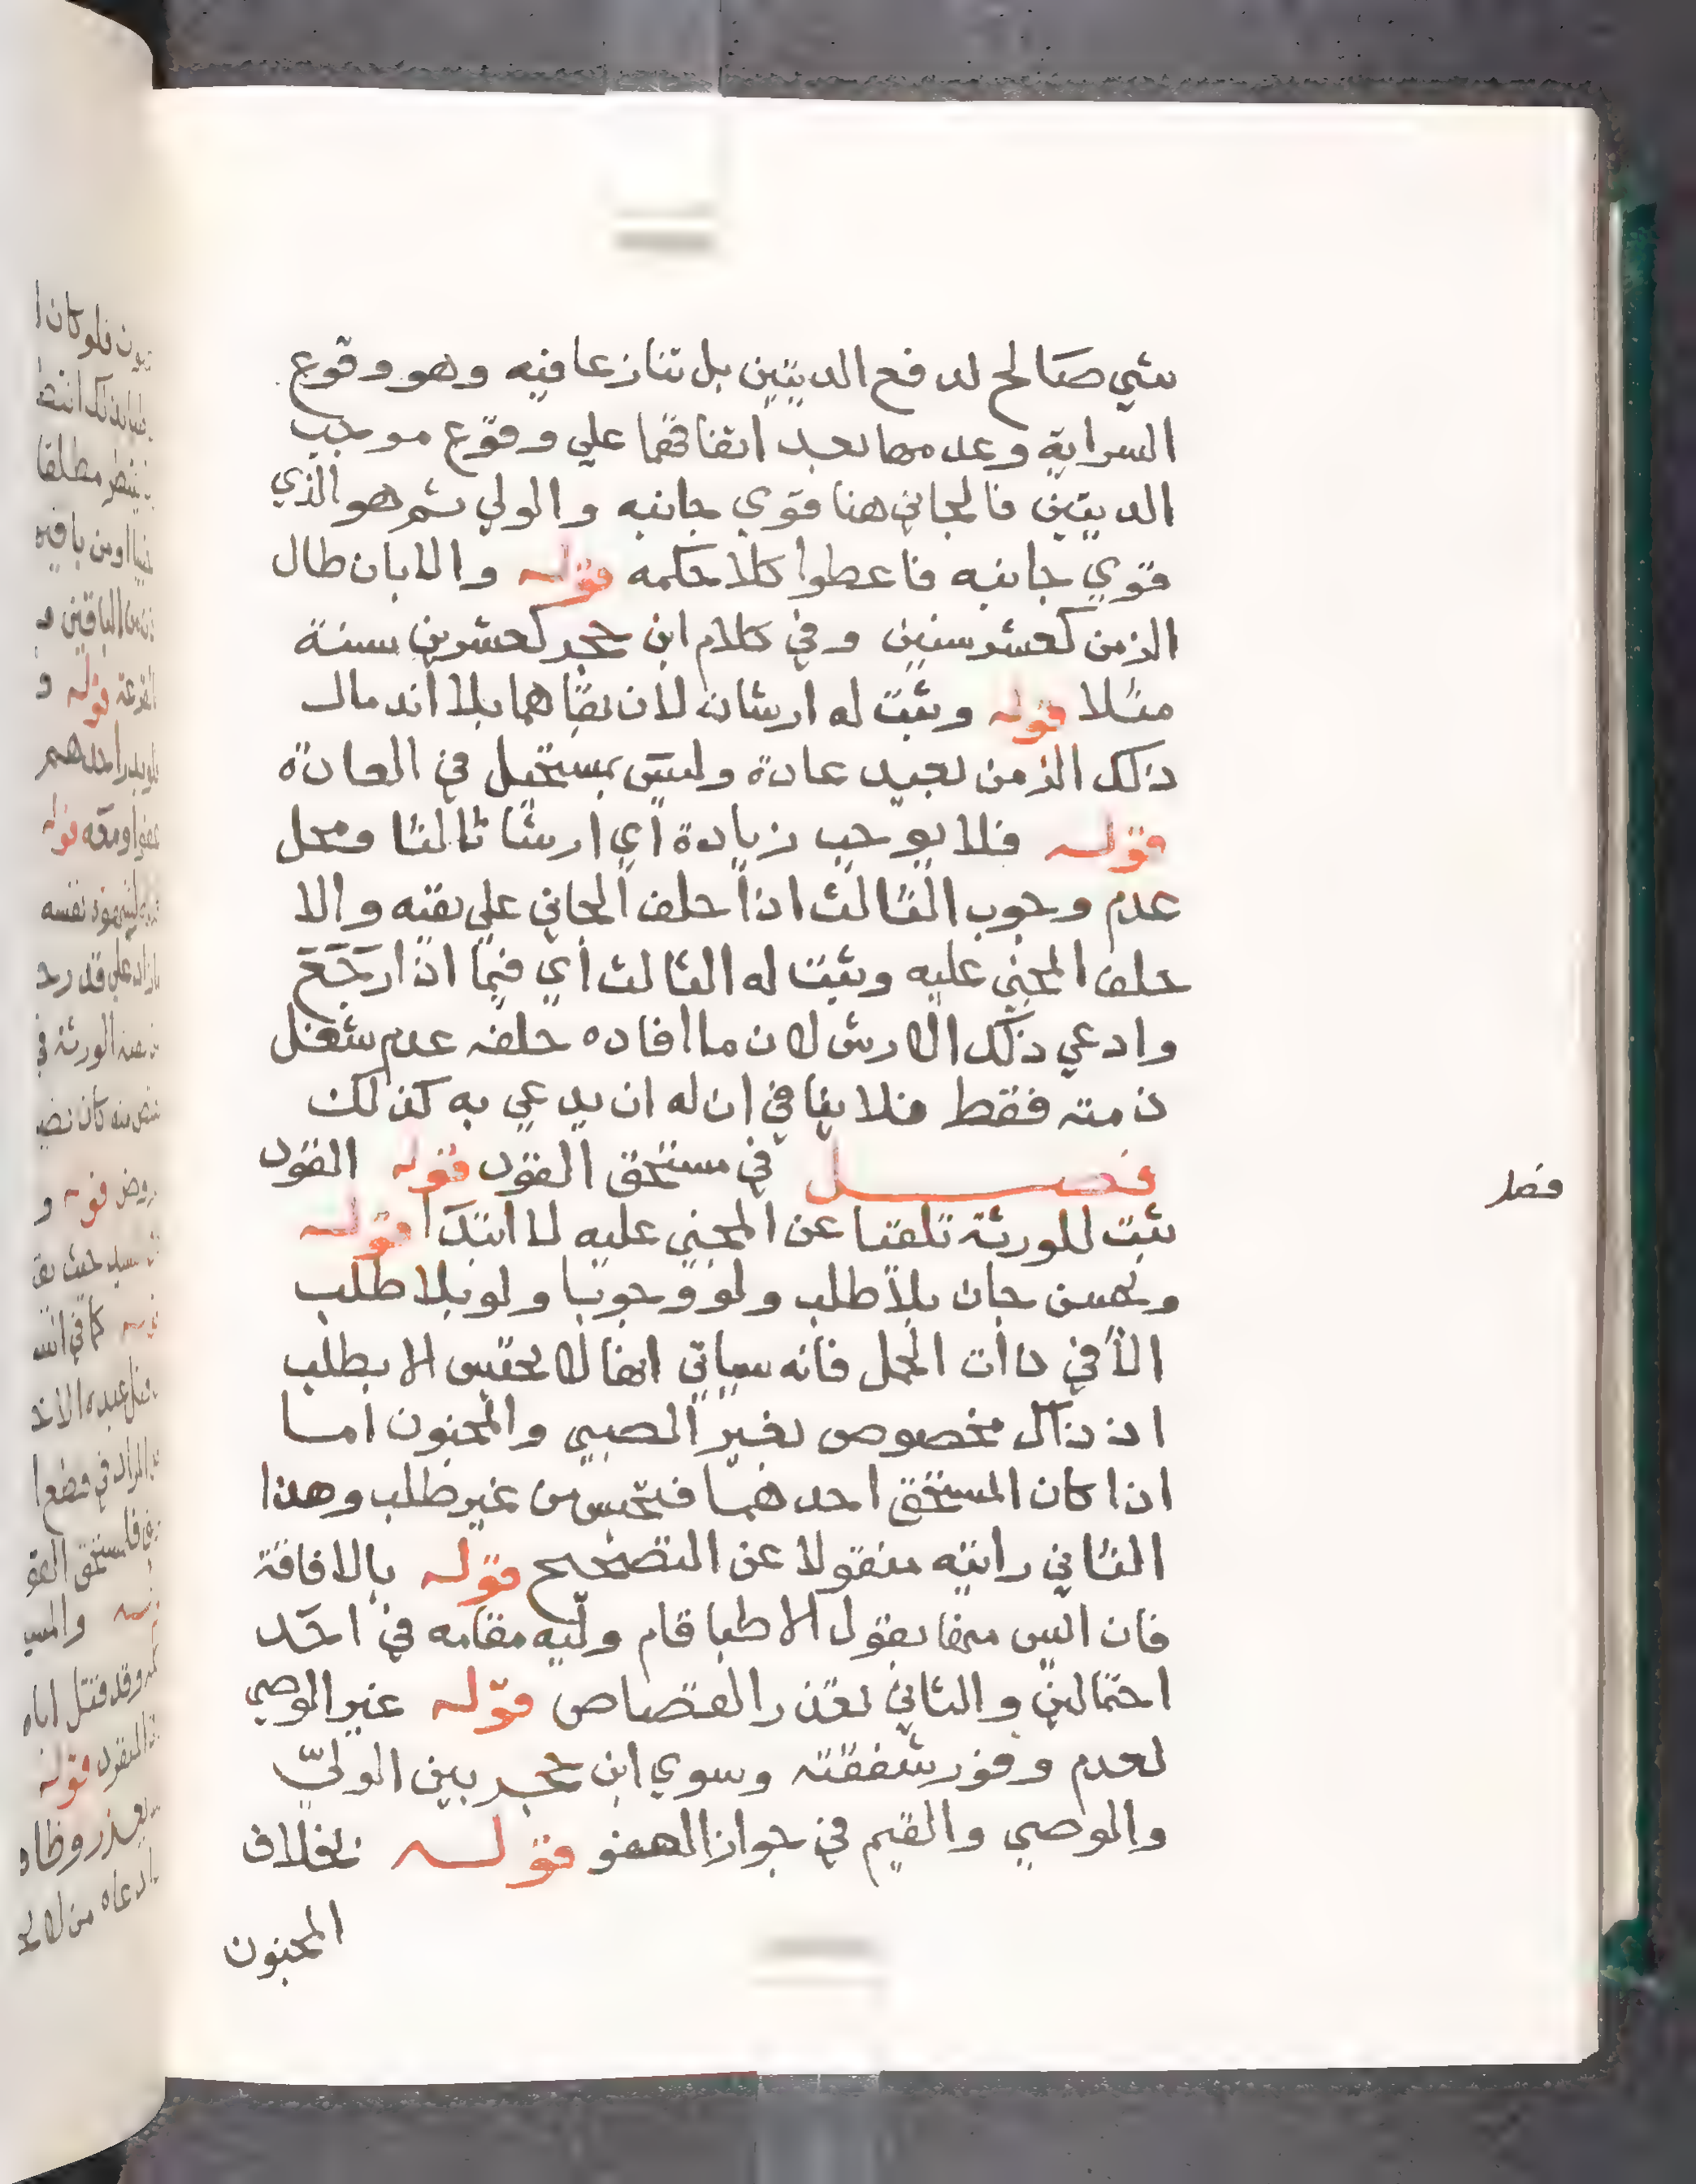 شي صالح لدفع الديتين بل تنازعا فيه وهو وقوع
السراية وعدمها بعد اتفاقهما علي وقوع موجب
الديتين فالجاني هنا قوي جانبه والولي ثم هو الذي
قوي جانبه فاعطوا كلا حكمه قوله والا بان طال
الزمن كعشر سنين وفي كلام ابن حجر كعشرين سنة
مثلا قوله وثبت له ارشان لان بقاهما بلا اندمال
ذلك الزمن بعيد عادة وليس بمستحيل في العادة
قوله فلا يوجب زيادة اي ارشا ثالثا ومحل
عدم وجوب الثالث اذا حلف الجاني علي نفيه والا
حلف المجني عليه وثبت له الثالث اي فيما اذا رجع
وادعي ذلك الارش لان ما افاده حلفه عدم شغل
ذمته فقط فلا ينافي ان له ان يدعي به كذلك
فصل في مستحق القود قوله القود
ثبت للورثة تلقيا عن المجني عليه لا ابتدا قوله
ويحبس جان بلا طلب ولو وجوبا ولو بلا طلب
الا في ذات الحمل فانه سياتي انها لا تحبس الا بطلب
اذ ذاك مخصوص بغير الصبي والمجنون اما
اذا كان المستحق احدهما فتحبس من غير طلب وهذا
الثاني رايته منقولا عن التصحيح قوله بالافاقة
فان ايس منها بقول الاطبا قام وليه مقامه في احد
احتمالين والثاني تعذر القصاص قوله غير الوصي
لعدم وفور شفقته وسوي ابن حجر بين الولي
والوصي والقيم في جواز العفو قوله بخلاف
المجنون
فصل